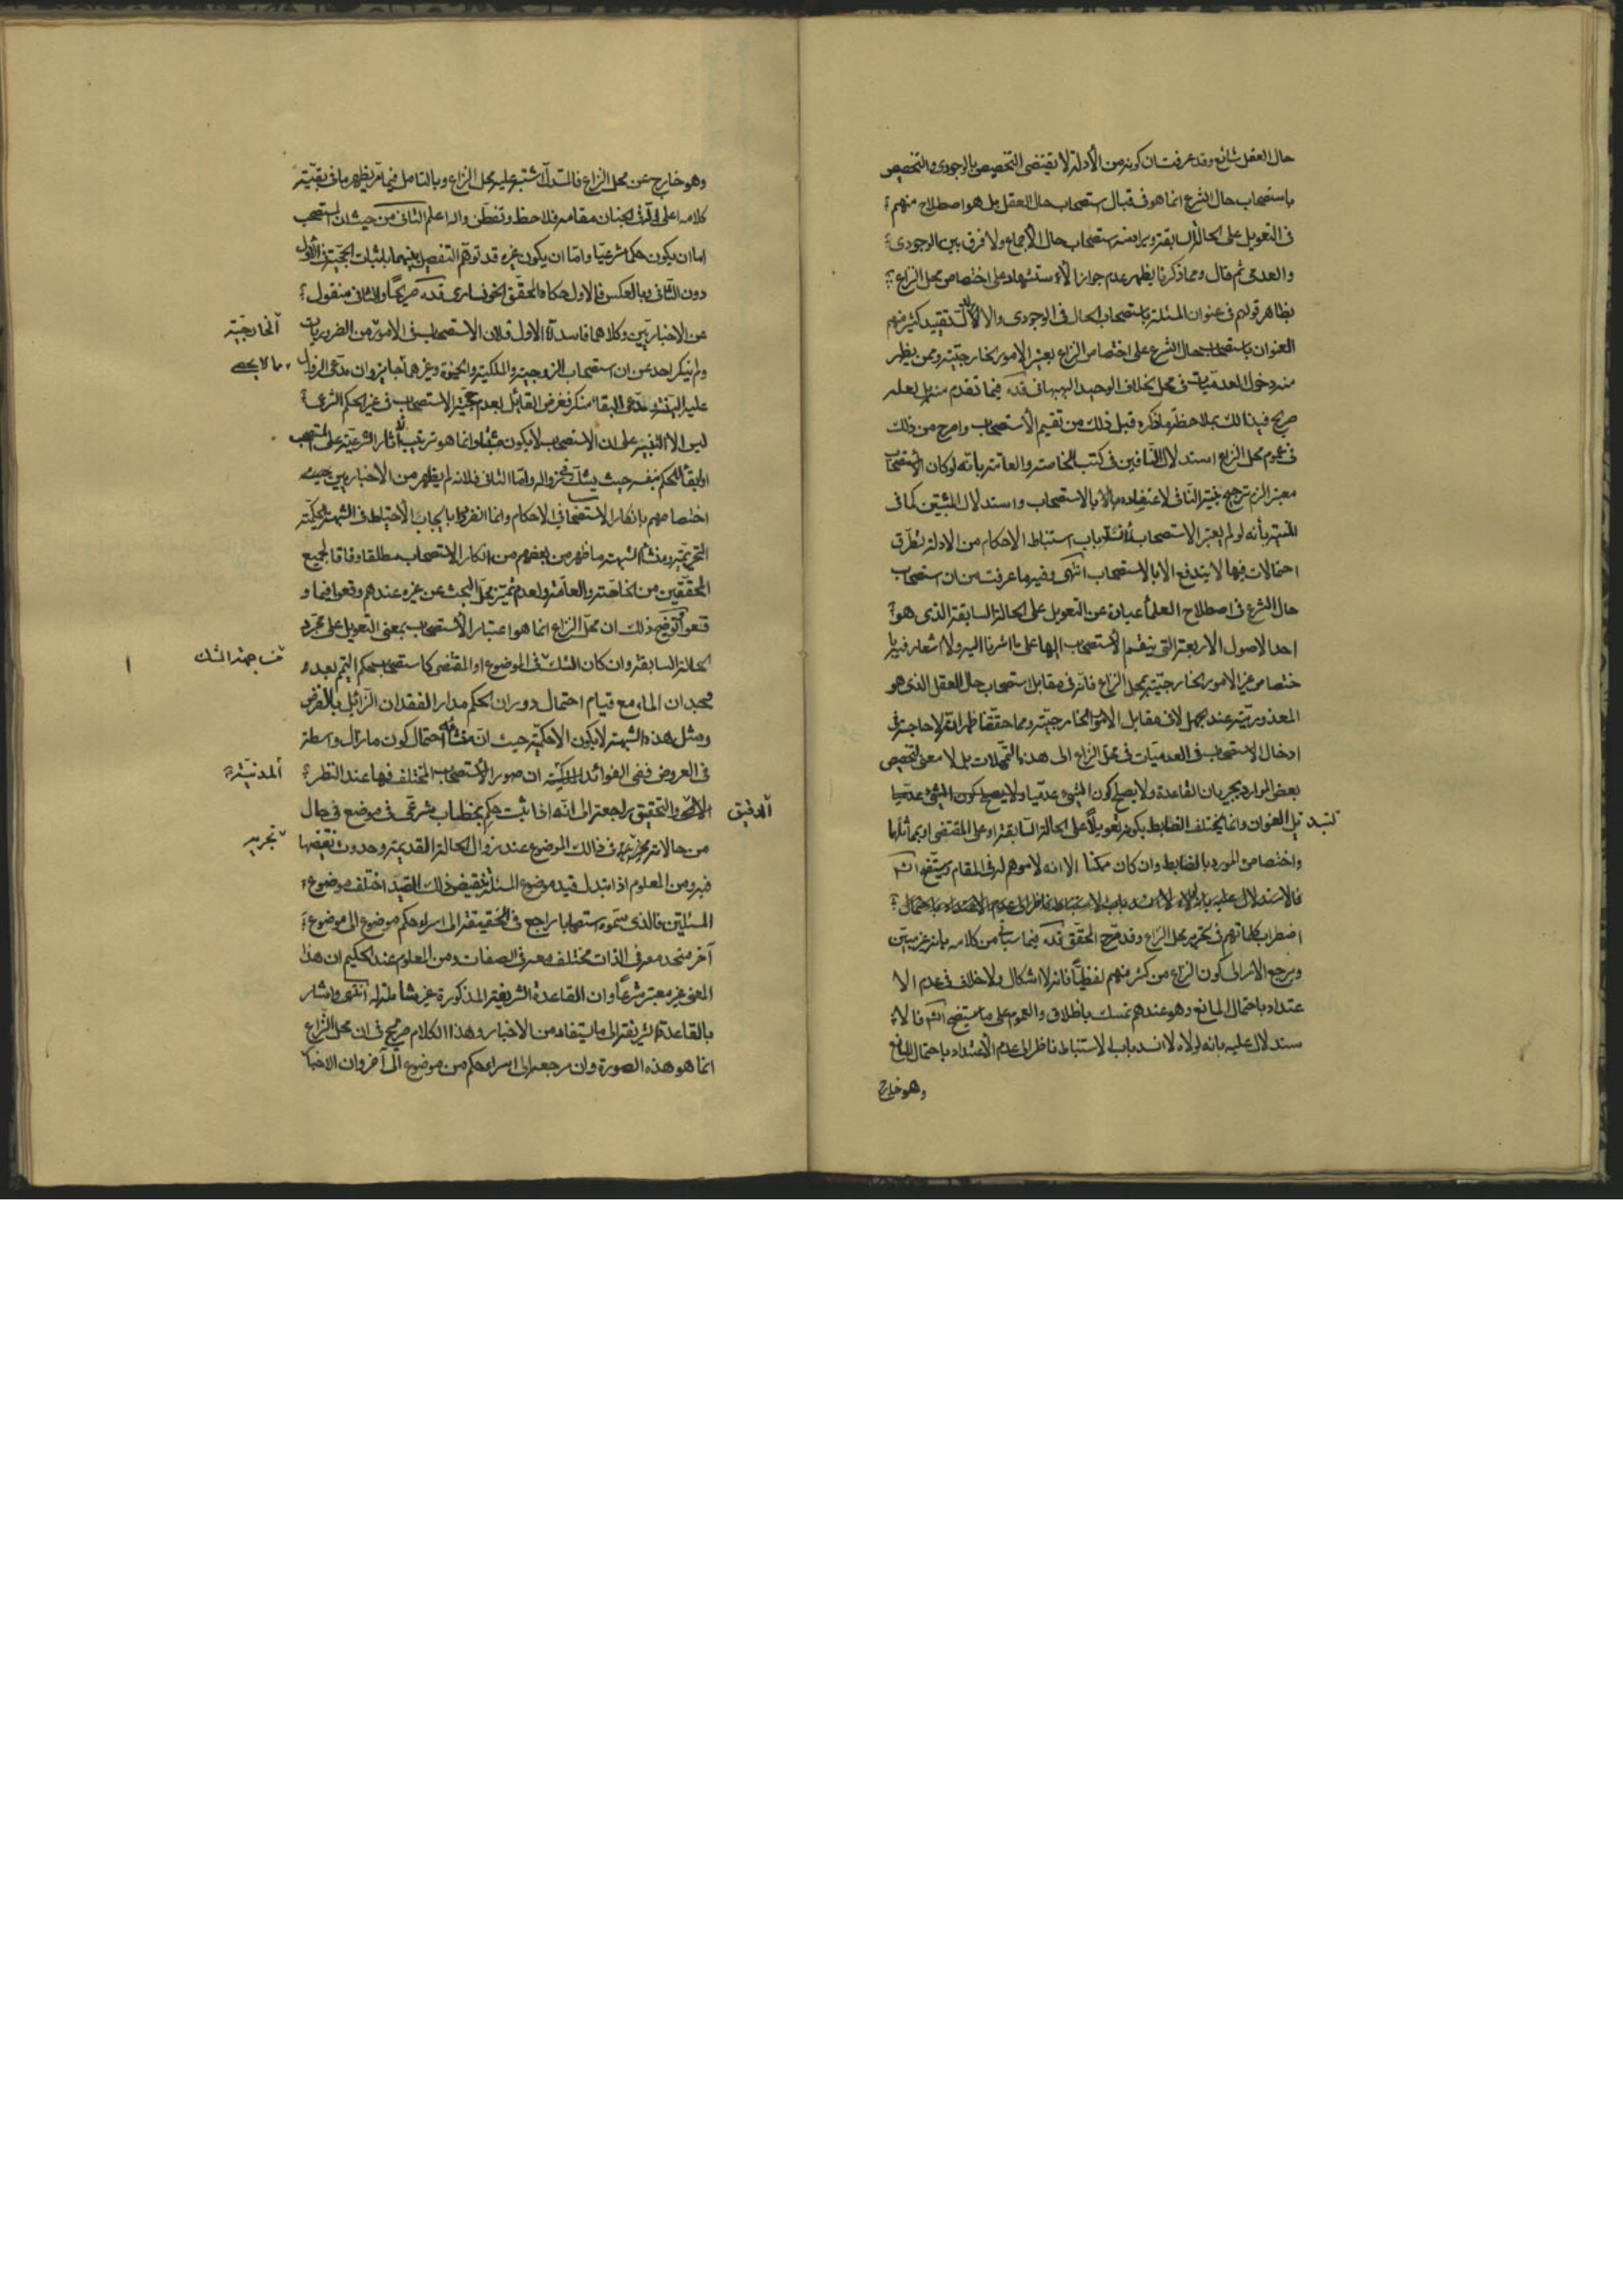 حال العقل شائع وقد عرفت ان كونه من الأدلة لا يقتضى التخصيص بالوجودى والتخصيص
باستصحاب حال الشرع انما هو فى قبال استصحاب حال العقل بل هو اصطلاح منهم
فى التعويل على الحالة السابقة ويرادفه استصحاب حال الأجماع ولا فرق بين الوجودى
والعدمى ثم قال ومما ذكرنا يظهر عدم جواز الأستشهاد على اختصاص محل النزاع
بظاهر قولهم فى عنوان المسئلة باستصحاب الحال فى الوجودى والا لدل تقييد كثير منهم
العنوان باستصحاب حال الشرع على اختصاص النزاع بغير الامور الخارجية وممن يظهر
منه دخول العدميات فى محل الخلاف الوحيد البهبهانى قده فيما تقدم منه بل لعله
صريح فى ذلك بملاحظة ما ذكره قبل ذلك من تقسيم الأستصحاب واصرح من ذلك
فى عموم محل النزاع استدلال النافين فى كتب الخاصة والعامة بأنه لو كان الأستصحاب
معتبرا لزم ترجيح بينة النافى لاعتضاده بالاستصحاب واستدلال المثبتين كما فى
المنية بأنه لو لم يعتبر الاستصحاب لأنسد باب استنباط الاحكام من الادلة لتطرق
احتمالات فيها لا يندفع الا بالاستصحاب انتهى وفيه ما عرفت من ان استصحاب
حال الشرع فى اصطلاح العلماء عبارة عن التعويل على الحالة السابقة الذى هو
احد الاصول الاربعة التى ينقسم الأستصحاب اليها على ما اشرنا اليه ولا اشعار فيه با
ختصاص غير الامور الخارجية بمحل النزاع فانه فى مقابل استصحاب حال العقل الذى هو
المعذورية عند الجهل لا فى مقابل الامور الخارجية ومما حققنا ظهر انه لا حاجة فى
ادخال الاستصحاب فى العدميات فى محل النزاع الى هذه التمحلات بل لا معنى لتخصيص
بعض الموارد بجريان القاعدة ولا يصلح كون الشىء عدميا ولا يصلح كون الشىء عدميا
لتبديل العنوان وانما يختلف الضابط بكونه تعويلا على الحالة السابقة او على المقتضى او بمماثلها
واختصاص المورد بالضابط وان كان ممكنا الا انه لا موهم له فى المقام وسيتضح انش
فالاستدلال عليه بانه لولاه لا انسد باب الاستنباط ناظر الى عدم الاعتداد باحتمال
اضطراب كلماتهم فى تحرير محل النزاع وقد صرح المحقق قده فيما سيأتى من كلامه بانه غير مبين
ويرجع الأمر الى كون النزاع من كثير منهم لفظيا فانه لا اشكال ولا خلاف فى عدم الا
عتداد باحتمال المانع وهو عندهم تمسك باطلاق والعموم على ما سيتضح انش فالا
ستدلال عليه بانه لولاه لانسد باب الاستنباط ناظر الى عدم الأعتداد باحتمال المانع
وهو خارج
وهو خارج عن محل النزاع فالمستدل اشتبه عليه محل النزاع وبالتامل فيما مر يظهر ما فى بقية
كلامه اعلى الله فى الجنان مقامه فلاحظ وتفطن والله اعلم الثانى من حيث ان المستصحب
اما ان يكون حكما شرعيا واما ان يكون غيره قد توهم التفصيل بينهما باثبات الحجية فى الأول
دون الثانى وبالعكس فالاول حكاه المحقق الخونسارى قده صريحا والثانى منقول
عن الاخباريين وكلاهما فاسد اما الاول فلان الاستصحاب فى الامور الخارجية من الضروريات
ولم ينكر احد عن ان استصحاب الزوجية والملكية والحيوة وغيرهما مما لا يحصى جايز وان مدعى الزوال
عليه البينة ومدعى البقاء منكر فغرض القائل بعدم حجية الاستصحاب فى غير الحكم الشرعى
ليس الا التنبيه على ان الاستصحاب لا يكون مثبتا وانما هو ترتيب الآثار الشرعية على المستصحب
او ابقاء للحكم بنفسه حيث يشك فى زواله واما الثانى فلانه لم يظهر من الأخباريين
اختصاصهم بانكار الاستصحاب فى الاحكام وانما انفردوا بايجاب الأحتياط فى الشبهة الحكمية
التحريمية ومنشأ الشبهة ما ظهر من بعضهم من انكار الاستصحاب مطلقا وفاقا لجميع
المحققين من الخاصة والعامة ولعدم تميز محل البحث عن غيره عندهم وقعوا فيما و
قعوا توضيح ذلك ان محل النزاع انما هو اعتبار الأستصحاب بمعنى التعويل على مجرد
الحالة السابقة وان كان الشك من جهة الشك فى الموضوع او المقتضى كاستصحاب حكم التيمم بعد و
جدان الماء مع قيام احتمال دوران الحكم مدار الفقدان الزائل بالفرض
ومثل هذه الشبهة لا يكون الا حكمية حيث ان منشأه احتمال كون ما زال واسطة
فى العروض ففى الفوائد المدنية ان صور الاستصحاب المختلف فيها عند النظر
الدقيق والتحقيق راجعة الى انه اذا ثبت حكم بخطاب شرعى فى موضع فى حال
من حالاته نجريه فى ذلك الموضوع عند زوال الحالة القديمة وحدوث نقيضها
فيه ومن المعلوم اذا تبدل قيد موضوع المسئلة بنقيض ذلك القيد اختلف موضوع
المسئلتين فالذى سموه استصحابا راجع فى الحقيقة الى اسراء حكم موضوع الى موضوع
آخر متحد معه فى الذات مختلف معه فى الصفات ومن المعلوم عند الحكيم ان هذا
المعنى غير معتبر شرعا وان القاعدة الشريفة المذكورة غير شاملة له انتهى واشار
بالقاعدة الشريفة الى ما يستفاد من الاخبار وهذا الكلام صريح فى ان محل النزاع
انما هو هذه الصورة وان مرجعه الى اسراء حكم من موضوع الى آخر وان الاخبا